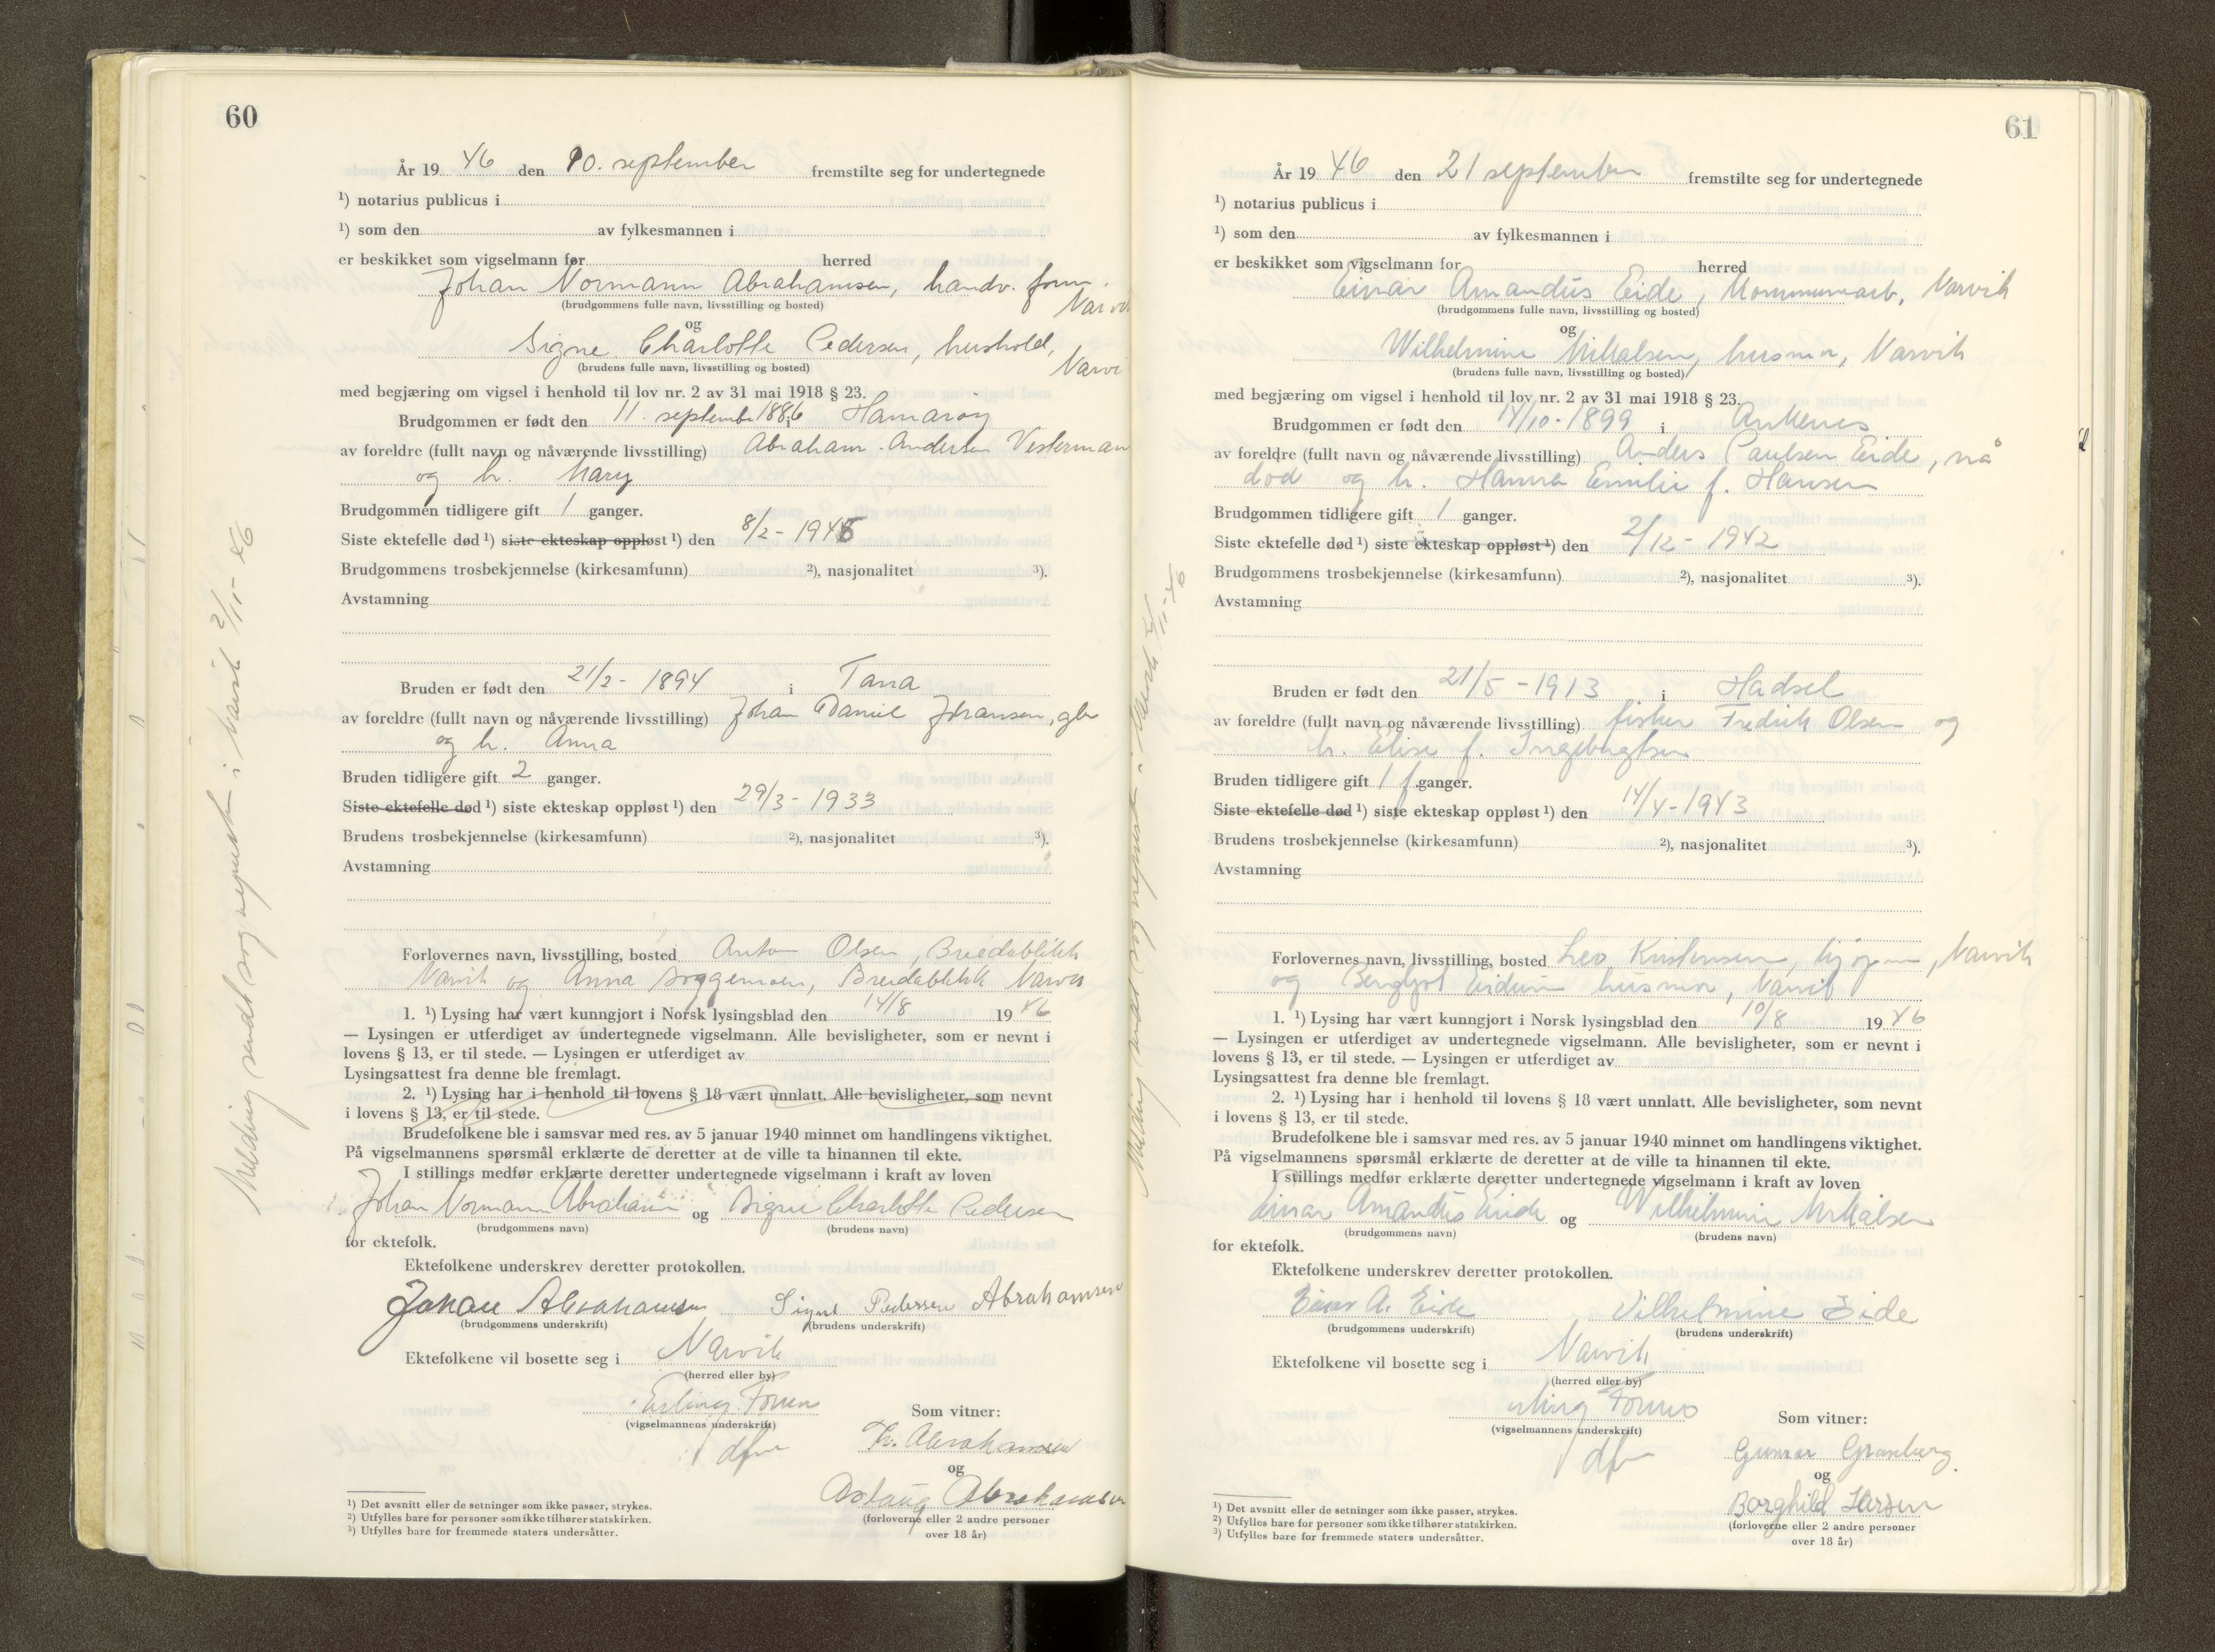 60
År 19 46 den 10. september fremstilte seg for undertegnede
¹) notarius publicus i
¹) som den av fylkesmannen i
er beskikket som vigselmann for herred
Johan Normann Abrahamsen, handv. form.
Narvik
(brudgommens fulle navn, livsstilling og bosted)
og
Signe Charlotte Pedersen, hushold,
Narvi
(brudens fulle navn, livsstilling og bosted)
med begjæring om vigsel i henhold til lov nr. 2 av 31 mai 1918 § 23.
Brudgommen er født den 11. septembe 1886 i Hamarøy
av foreldre (fullt navn og nåværende livsstilling) Abraham Andersen Vesterman
og h. Mary
Brudgommen tidligere gift 1 ganger.
Siste ektefelle død ¹) siste ekteskap oppløst ¹) den 8/2 - 1945
Brudgommens trosbekjennelse (kirkesamfunn) ²), nasjonalitet ³).
Avstamning
Bruden er født den 21/2 - 1894 i Tana
av foreldre (fullt navn og nåværende livsstilling) Johan Daniel Johansen, gbr
og h. Anna
Bruden tidligere gift 2 ganger.
Siste ektefelle død ¹) siste ekteskap oppløst ¹) den 29/3 - 1933
Brudens trosbekjennelse (kirkesamfunn) ²), nasjonalitet ³).
Avstamning
Forlovernes navn, livsstilling, bosted Anton Olsen, Breidablikk
Narvik og Anna, Breidablikk Narvik
1. ¹) Lysing har vært kunngjort i Norsk lysingsblad den 14/8 19 46
— Lysingen er utferdiget av undertegnede vigselmann. Alle bevisligheter, som er nevnt i
lovens § 13, er til stede. — Lysingen er utferdiget av
Lysingsattest fra denne ble fremlagt.
2. ¹) Lysing har i henhold til lovens § 18 vært unnlatt. Alle bevisligheter, som nevnt
i lovens § 13, er til stede.
Brudefolkene ble i samsvar med res. av 5 januar 1940 minnet om handlingens viktighet.
På vigselmannens spørsmål erklærte de deretter at de ville ta hinannen til ekte.
I stillings medfør erklærte deretter undertegnede vigselmann i kraft av loven
Johan Normann Abrahamsen og Signe Charlotte Pedersen
(brudgommens navn) (brudens navn)
for ektefolk.
Ektefolkene underskrev deretter protokollen.
Johan Abrahamsen Signe Pedersen Abrahamsen
(brudgommens underskrift) (brudens underskrift)
Ektefolkene vil bosette seg i Narvik
(herred eller by)
Erling
(vigselmannens underskrift)
dfm
Som vitner:
Th. Abrahamsen
og
Aslaug Abrahamsen
(forloverne eller 2 andre personer
over 18 år)
¹) Det avsnitt eller de setninger som ikke passer, strykes.
²) Utfylles bare for personer som ikke tilhører statskirken.
³) Utfylles bare for fremmede staters undersåtter.
Melding sendt sognepresten i Narvik 2/11- 46
61
År 19 46 den 21 september fremstilte seg for undertegnede
¹) notarius publicus i
¹) som den av fylkesmannen i
er beskikket som vigselmann for herred
Einar Amandus Eide, Kommunearb, Narvik
(brudgommens fulle navn, livsstilling og bosted)
og
Wilhelmine Mikalsen, husmor, Narvik
(brudens fulle navn, livsstilling og bosted)
med begjæring om vigsel i henhold til lov nr. 2 av 31 mai 1918 § 23.
Brudgommen er født den 14/10 - 1899 i Ankenes
av foreldre (fullt navn og nåværende livsstilling) Anders Paulsen Eide, nå
død og h. Hanna Emilie f. Hansen
Brudgommen tidligere gift 1 ganger.
Siste ektefelle død ¹) siste ekteskap oppløst ¹) den 2/12 - 1942
Brudgommens trosbekjennelse (kirkesamfunn) ²), nasjonalitet ³).
Avstamning
Bruden er født den 21/5 - 1913 i Hadsel
av foreldre (fullt navn og nåværende livsstilling) fisker Fredrik Olsen og
h. Elise f. Ingebrigtsen
Bruden tidligere gift 1 f. ganger.
Siste ektefelle død ¹) siste ekteskap oppløst ¹) den 14/4 - 1943
Brudens trosbekjennelse (kirkesamfunn) ²), nasjonalitet ³).
Avstamning
Forlovernes navn, livsstilling, bosted Leo Kristensen, Narvik
og Bergljot husmor, Narvik
1. ¹) Lysing har vært kunngjort i Norsk lysingsblad den 10/8 19 46
— Lysingen er utferdiget av undertegnede vigselmann. Alle bevisligheter, som er nevnt i
lovens § 13, er til stede. — Lysingen er utferdiget av
Lysingsattest fra denne ble fremlagt.
2. ¹) Lysing har i henhold til lovens § 18 vært unnlatt. Alle bevisligheter, som nevnt
i lovens § 13, er til stede.
Brudefolkene ble i samsvar med res. av 5 januar 1940 minnet om handlingens viktighet.
På vigselmannens spørsmål erklærte de deretter at de ville ta hinannen til ekte.
I stillings medfør erklærte deretter undertegnede vigselmann i kraft av loven
Einar Amandus Eide og Wilhelmine Mikalsen
(brudgommens navn) (brudens navn)
for ektefolk.
Ektefolkene underskrev deretter protokollen.
Einar A. Eide Vilhelmine Eide
(brudgommens underskrift) (brudens underskrift)
Ektefolkene vil bosette seg i Narvik
(herred eller by)
Erling
(vigselmannens underskrift)
dfm
Som vitner:
Gunnar Graneberg
og
Borghild Larsen
(forloverne eller 2 andre personer
over 18 år)
¹) Det avsnitt eller de setninger som ikke passer, strykes.
²) Utfylles bare for personer som ikke tilhører statskirken.
³) Utfylles bare for fremmede staters undersåtter.
Melding sendt sogneprest i Narvik 2/11- 46